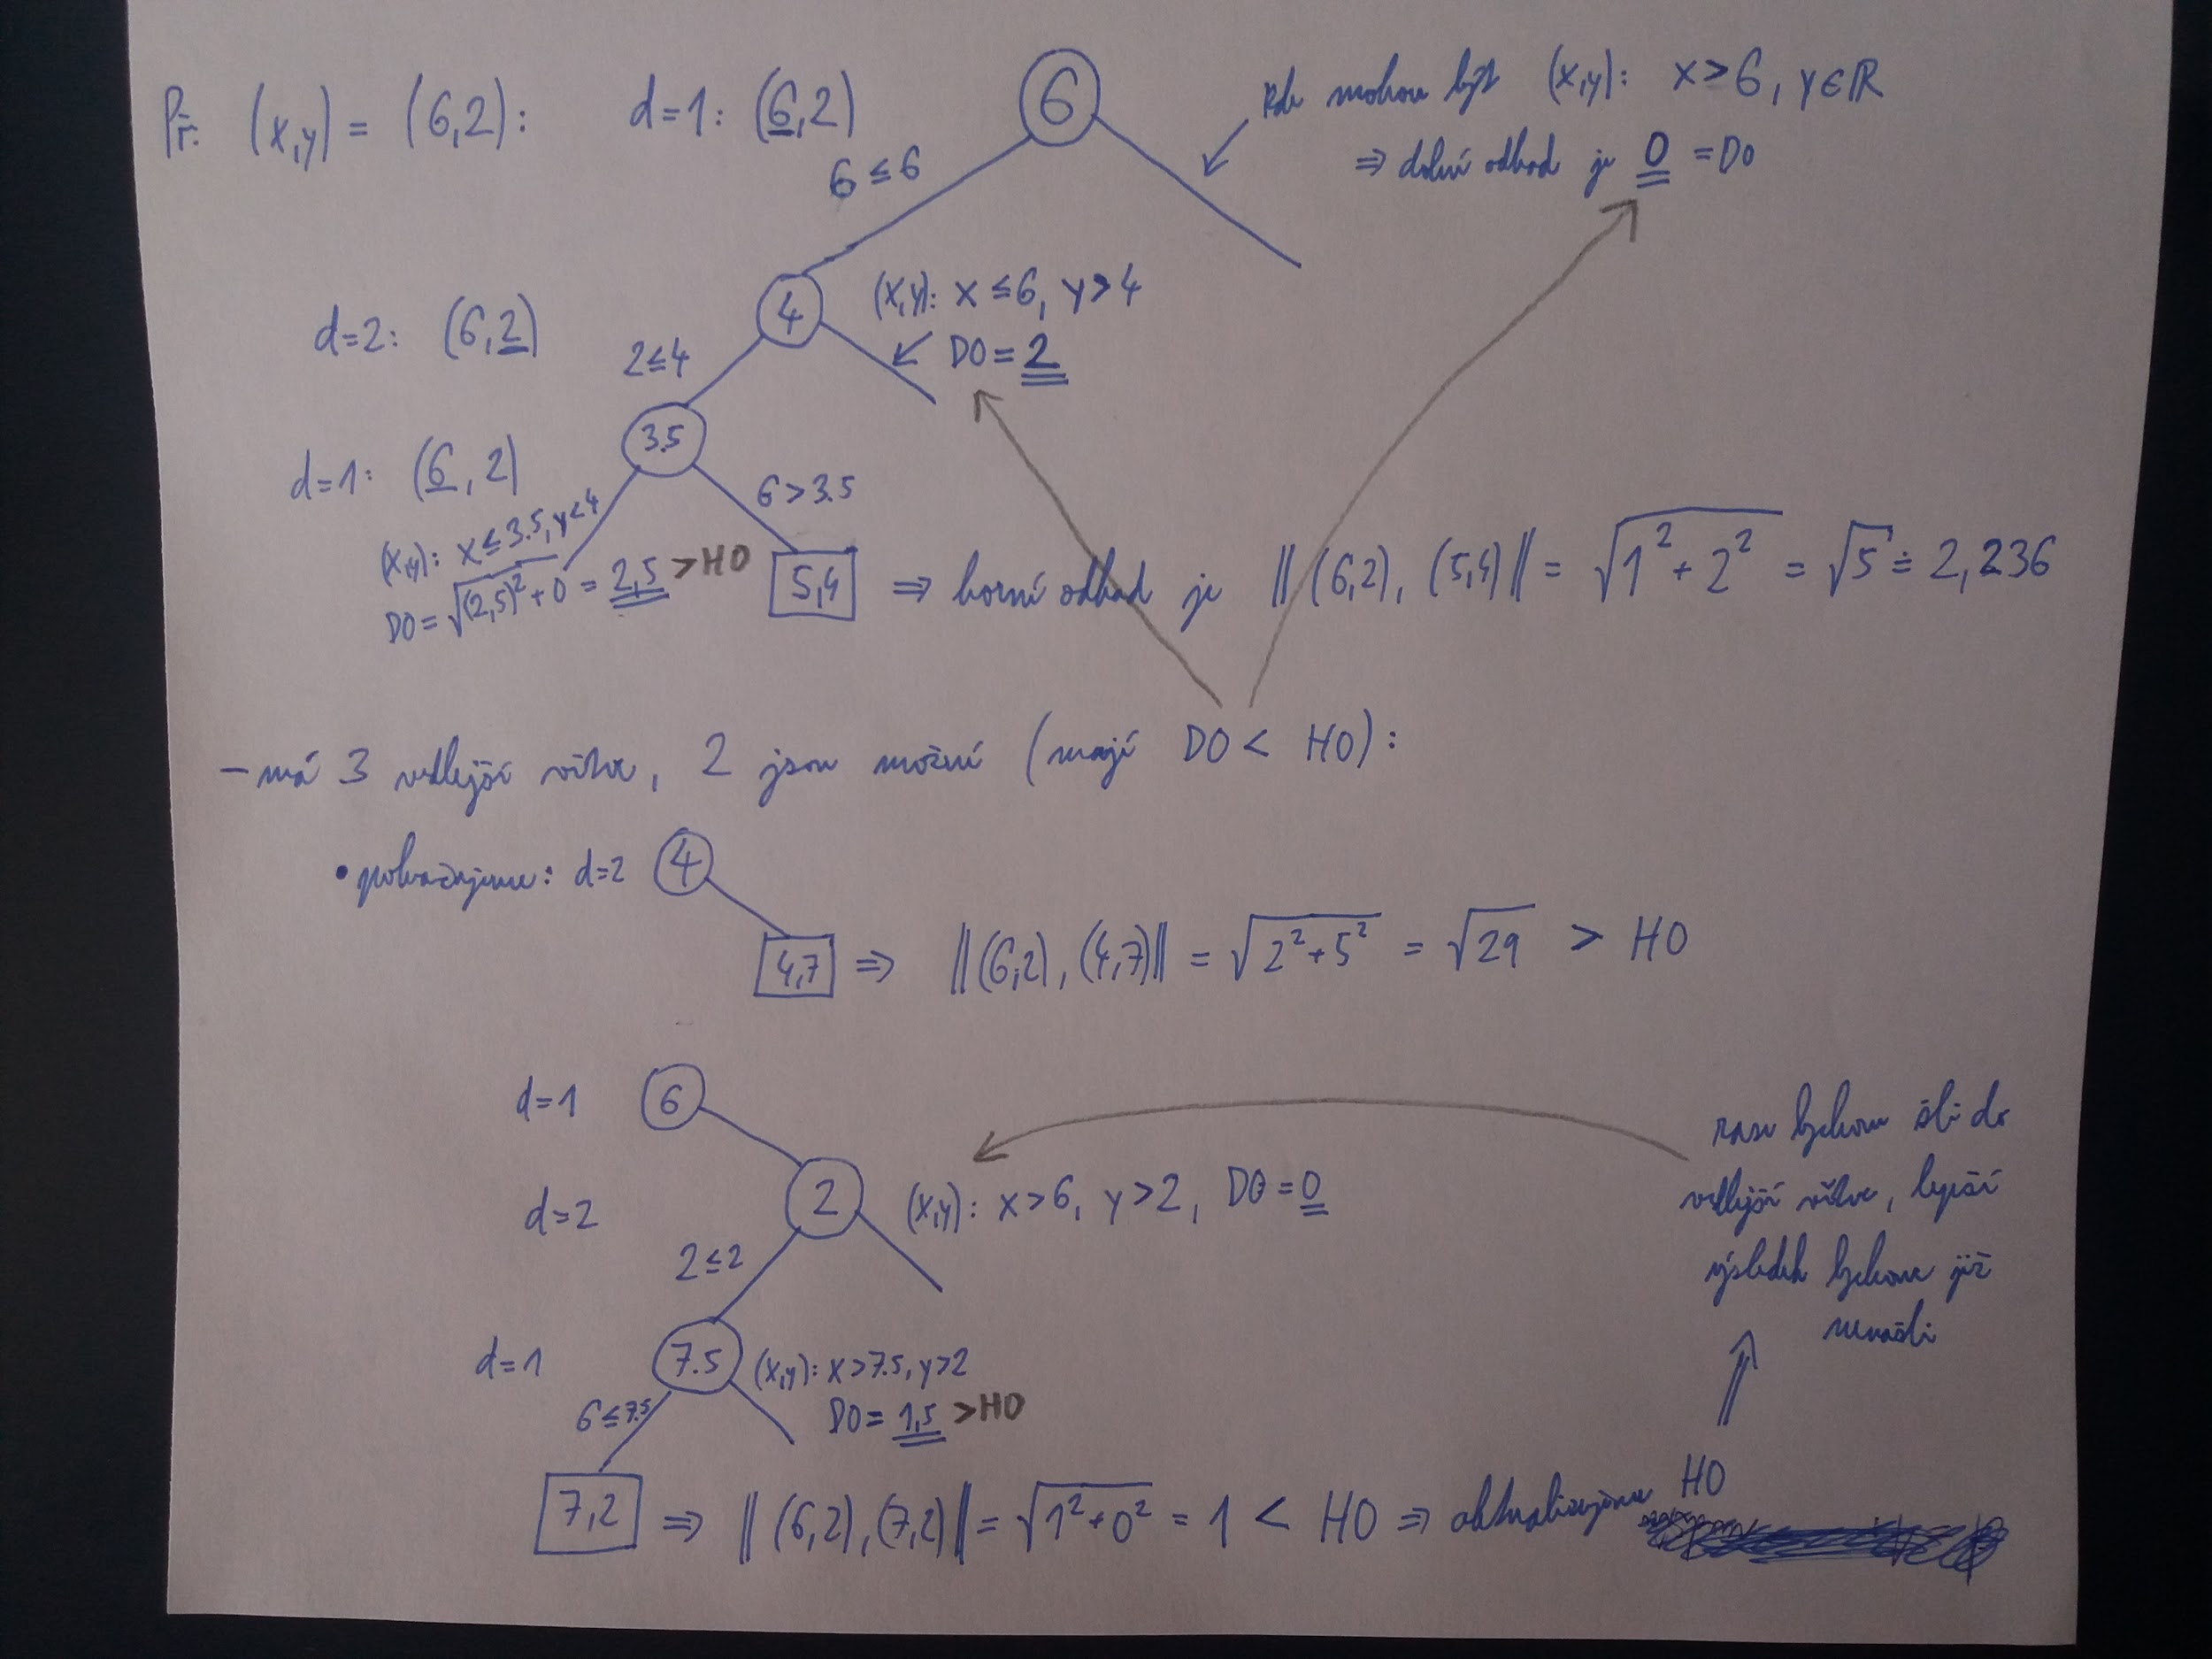 Př: (x,y) = (6,2): d=1: (6,2)
6
kde mohou být (x,y): x>6, y∈ℝ
⇒ dolní odhad je 0 = DO
6 ≤ 6
d=2: (6,2)
4
(x,y): x ≤ 6, y>4
DO = 2
2≤4
d=1: (6,2)
3.5
6>3.5
(x,y): x≤3.5, y<4
DO = √((2,5)²+0) = 2,5 >HO
5,4 ⇒ horní odhad je ||(6,2), (5,4)|| = √(1²+2²) = √5 ≐ 2,236
– má 3 vedlejší větve, 2 jsou možné (mají DO < HO):
• pokračujeme: d=2 4
4,7 ⇒ ||(6,2), (4,7)|| = √(2²+5²) = √29 > HO
d=1 6
d=2 2 (x,y): x>6, y>2, DO = 0
2≤2
d=1 7.5 (x,y): x>7.5, y>2
DO = 1,5 >HO
6≤7.5
7,2 ⇒ ||(6,2), (7,2)|| = √(1²+0²) = 1 < HO ⇒ aktualizujeme HO
zase bychom šli do
vedlejší větve, lepší
výsledek bychom již
nenašli